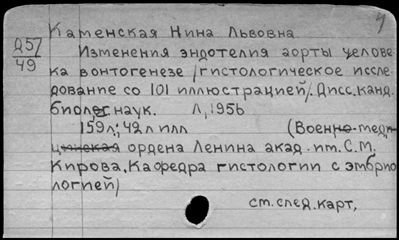 Каменская Нина Львовна
Д57/49
Изменения эндотелия аорты челове
ка вонтогенезе /гистологическое иссле
дование со 101 иллюстрацией/. Дисс. канд.
биолог наук. Л, 1956
159л; 42л илл (Военно-меди
цинская ордена Ленина акад. им. С. М.
Кирова. Кафедра гистологии с эмбрио
логией)
см. след. карт,